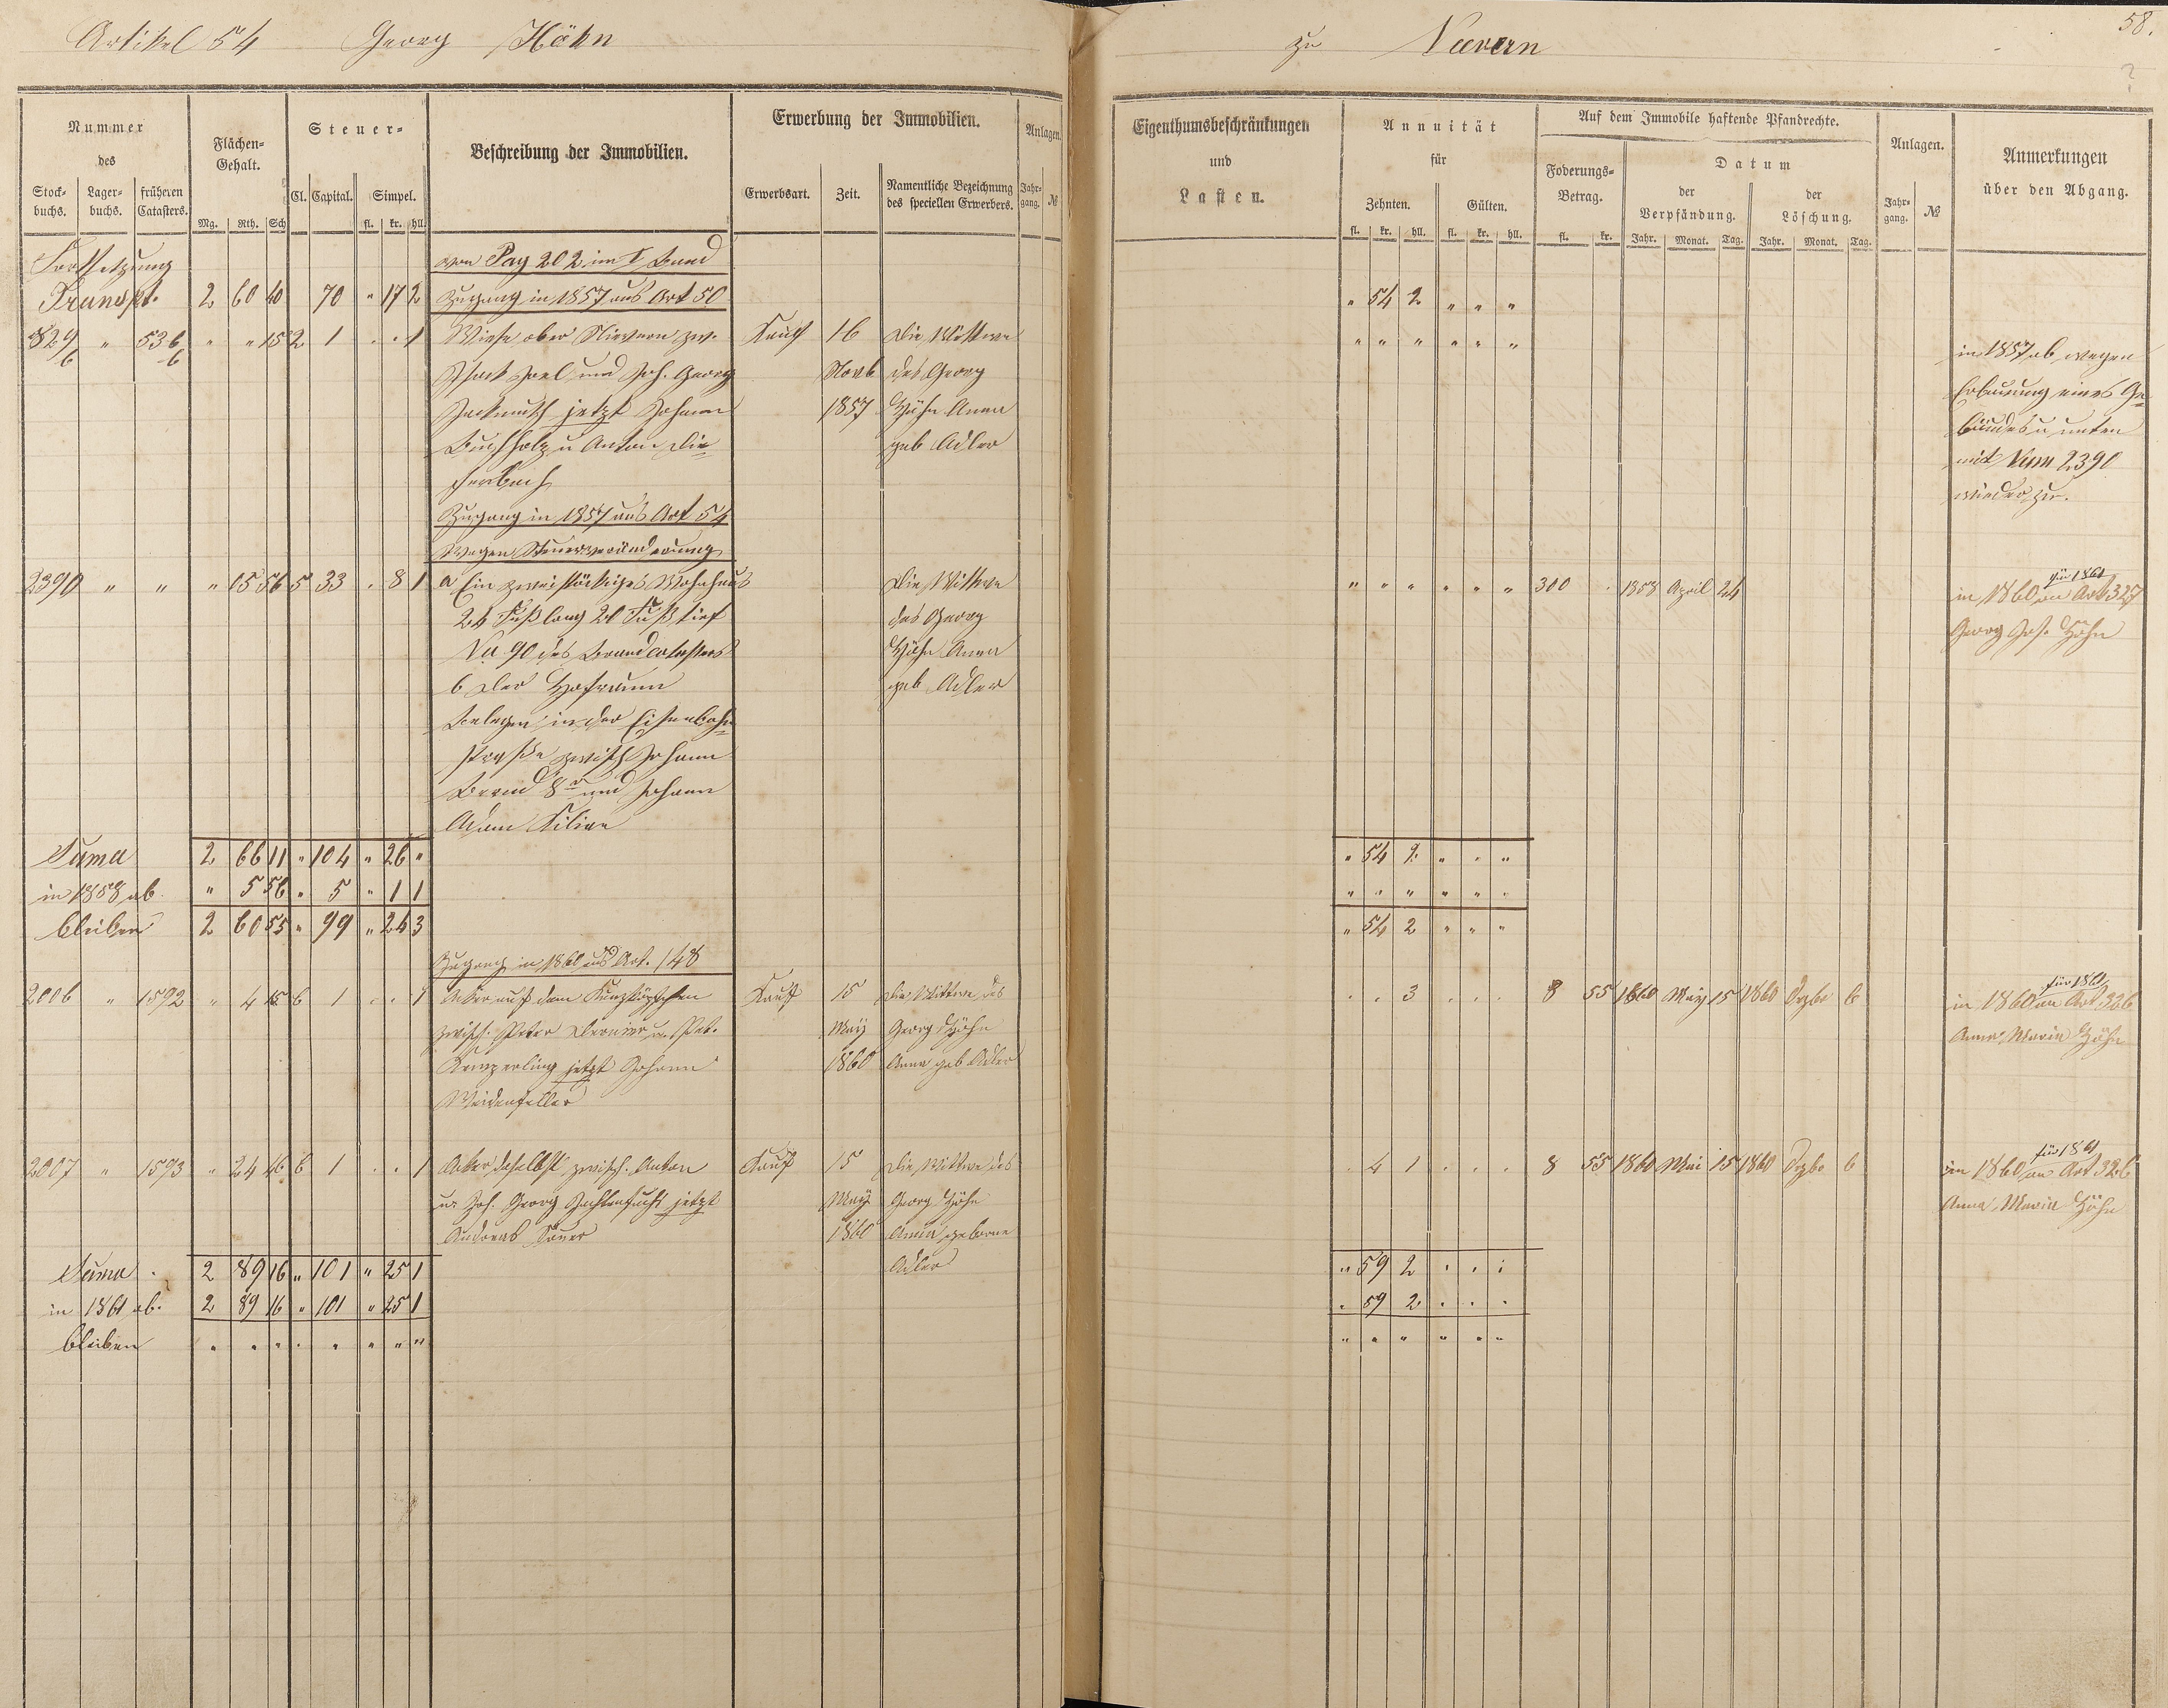 Artikel 54 Georg Höhn
zu Nievern
58.
Nummer
des
Stock-
buchs.
Lager-
buchs.
früheren
Catasters.
Flächen-
Gehalt.
Mg. Rth. Sch
Steuer-
Cl. Capital. Simpel.
fl. kr. hll.
Beschreibung der Immobilien.
Erwerbung der Immobilien.
Erwerbsart. Zeit.
Namentliche Bezeichnung
des speciellen Erwerbers.
Anlagen.
Jahr-
gang. №
Eigenthumsbeschränkungen
und
Lasten.
Annuität
für
Zehnten. Gülten.
fl. kr. hll. fl. kr. hll.
Auf dem Immobile haftende Pfandrechte.
Foderungs-
Betrag.
fl. kr.
Datum
der
Verpfändung.
Jahr. Monat. Tag.
der
Löschung.
Jahr. Monat. Tag.
Anlagen.
Jahr-
gang. №
Anmerkungen
über den Abgang.
Fortsetzung von Pag 202 im I Band
Transpt. 2 60 40 70 " 17 2 Zugang in 1857 aus Art 50 " 54 2 " " "
829/6 " 536/6 " " 15 2 1 . . 1 Wiese ober Nievern zw. Kauf 16 Die Wittwe " " " " " "
und Joh. Georg Novb des Georg
jetzt Johann 1857 Höhn Anna
Buchholz u Anton Die= geb Adler
fenbach
in 1857 ab wegen
Erbauung eines Ge=
bäudes u unten
mit Num 2390
wieder zu.
Zugang in 1857 aus Art 54
wegen Steuerveränderung
2390 " " " 15 56 5 33 . 8 1 a Ein zweistöckiges Wohnhaus Die Wittwe " " " " " " 300 . 1858 April 24
24 Fuß lang 20 Fuß tief des Georg
No 90 des Brandcatasters Höhn Anna
b Der Hofraum geb Adler
Belegen in der Eisenbahn=
straße zwisch Johann
8r und Johann
Adam Kilian
für 1861
in 1860 an Art 327
Georg Jos. Höhn
Suma 2 66 11 " 104 " 26 " " 54 2 " " "
in 1858 ab " 5 56 " 5 " 1 1 " " " " " "
bleiben 2 60 55 " 99 " 24 3 " 54 2 " " "
Zugang in 1860 aus Art. 148
2006 " 1592 " 4 15 6 1 . . 1 Acker auf dem Kauf 15 Die Wittwe des . . 3 . . . 8 55 1860 May 15 1860 Dzbr 6
zwisch. Peter u. Pet. May Georg Höhn
jetzt Johann 1860 Anna geb Adler
Weidenfeller
für 1861
in 1860 an Art 326
Anna Maria Höhn
2007 " 1593 " 24 46 6 1 . . 1 Acker daselbst zwisch. Anton Kauf 15 Die Wittwe des . 4 1 . . . 8 55 1860 Mai 15 1860 Dzbr 6
u. Joh. Georg jetzt May Georg Höhn
Andreas 1860 Anna geborne
Adler
für 1861
in 1860 an Art 326
Anna Maria Höhn
Suma 2 89 16 " 101 " 25 1 " 59 2 . . .
in 1861 ab. 2 89 16 " 101 " 25 1 . 59 2 . . .
bleiben " " " " " " " " " " " " " "